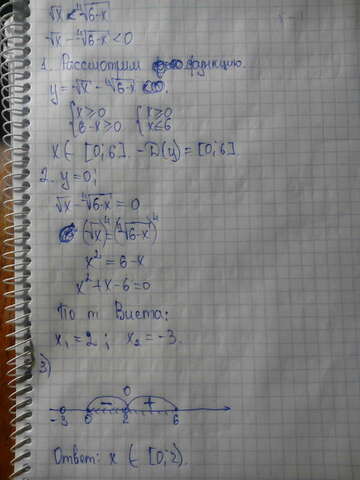 √x < ⁴√6-x
√x - ⁴√6-x < 0
1. Рассмотрим функцию
y = √x - ⁴√6-x
{ x ≥ 0 { x ≥ 0
{ 6-x ≥ 0 { x ≤ 6
x ∈ [0; 6] - D(y) = [0; 6].
2. y = 0;
√x - ⁴√6-x = 0
(√x)⁴ = (⁴√6-x)⁴
x² = 6-x
x² + x - 6 = 0
По т. Виета:
x₁ = 2; x₂ = -3.
3)
0
- +
-3 0 2 6
Ответ: x ∈ [0; 2).